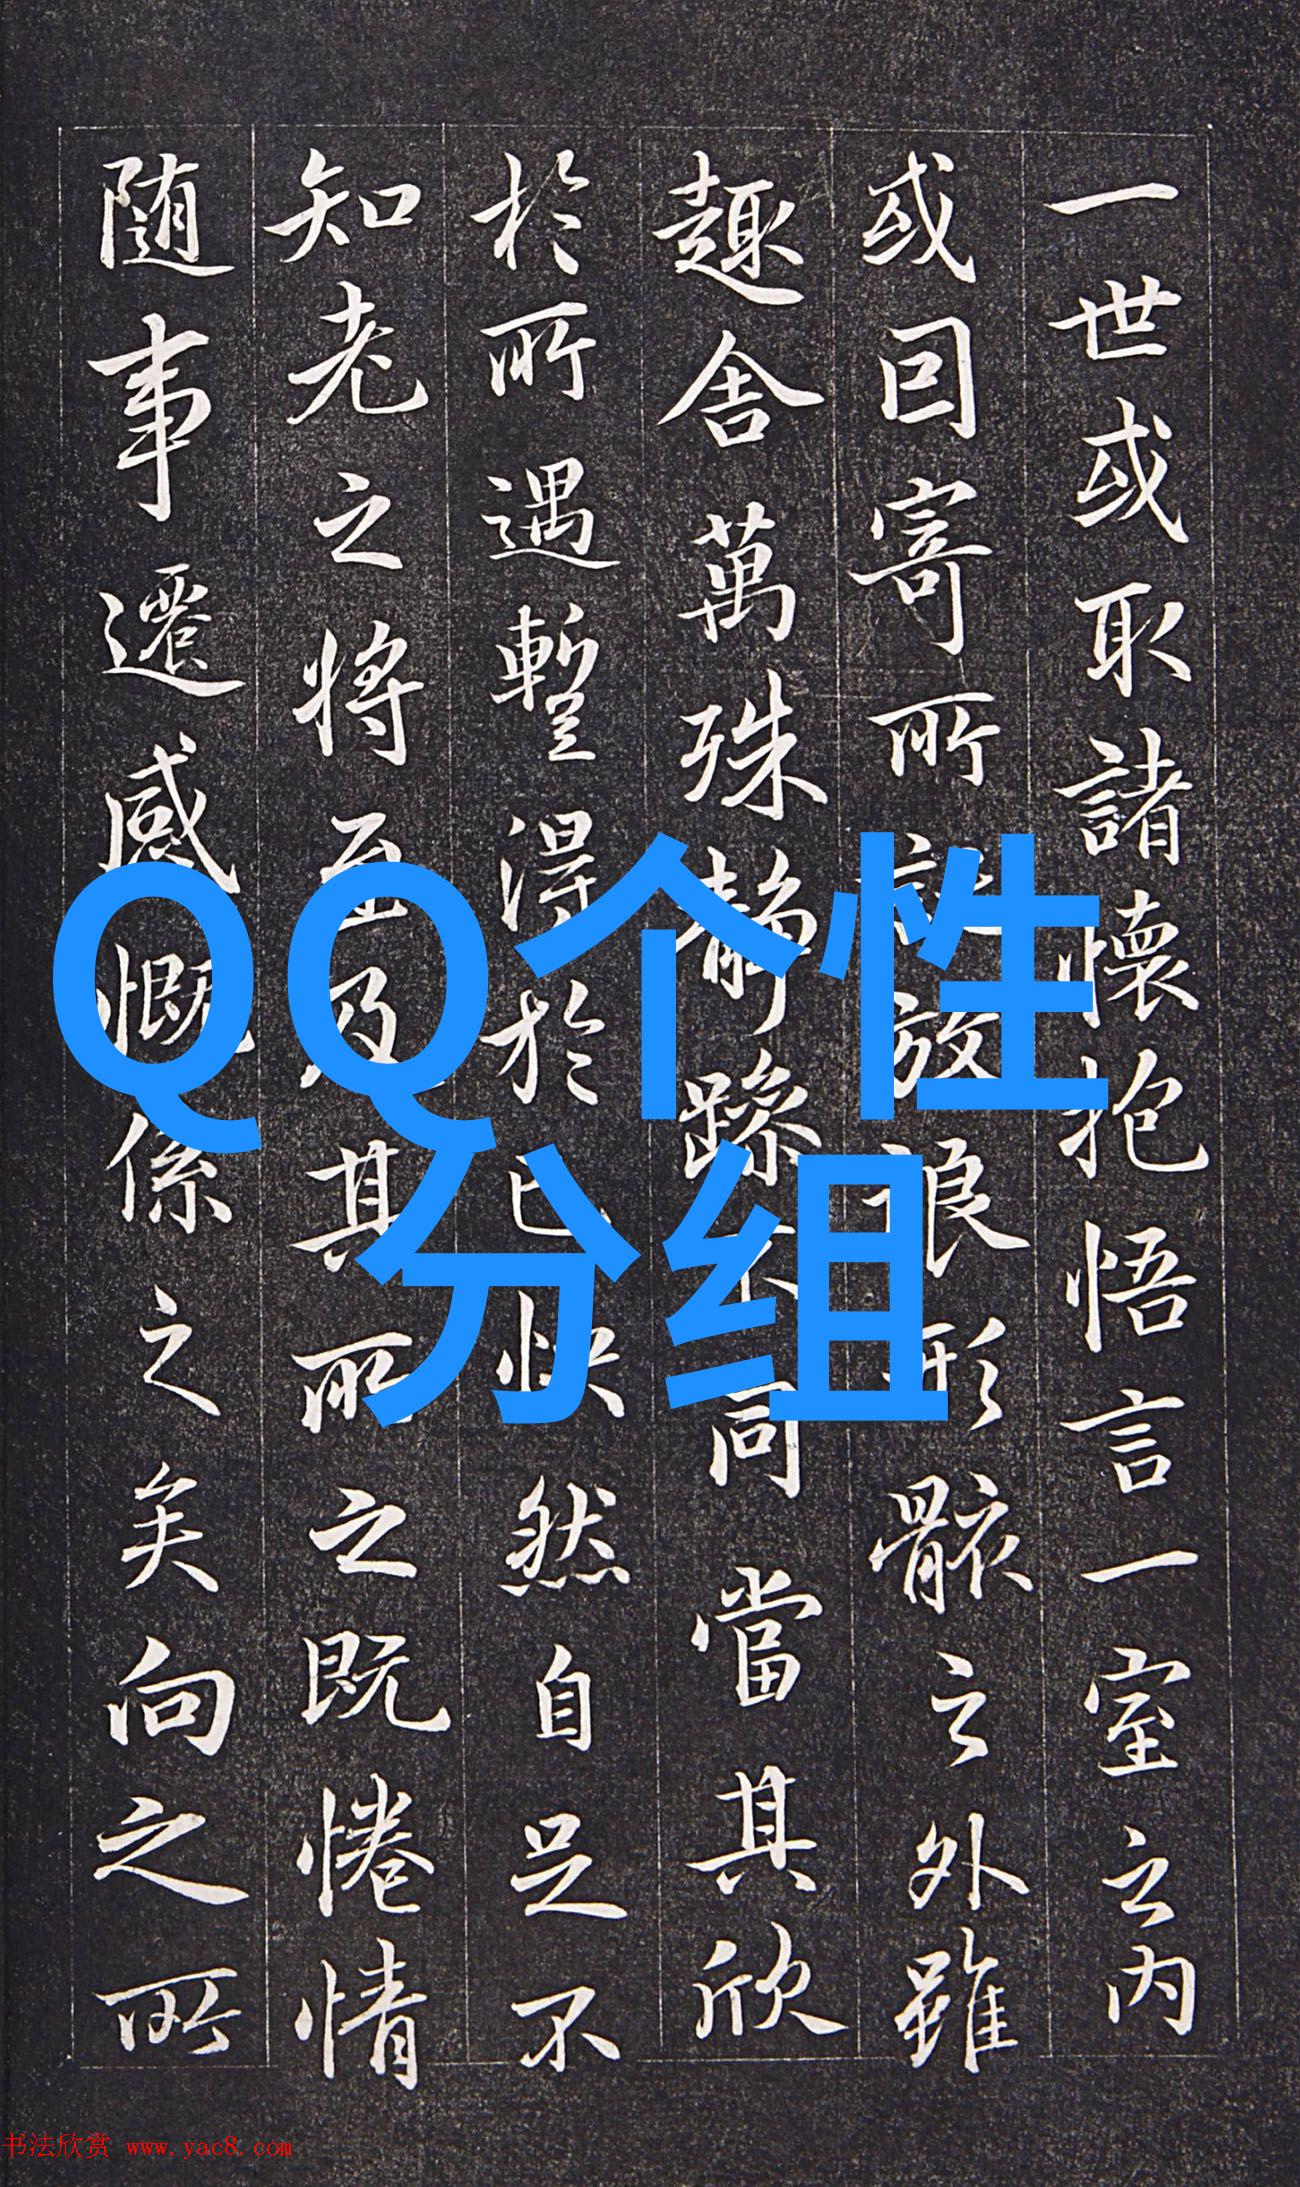 一世或取諸懷抱悟言一室之内
或因寄所託放浪形骸之外雖
趣舍萬殊静躁不同當其欣
於所遇暫得於己快然自足不
知老之將至及其所之既惓情
随事遷感慨係之矣向之所
QQ个性
分组
书法欣赏 www.yac8.com